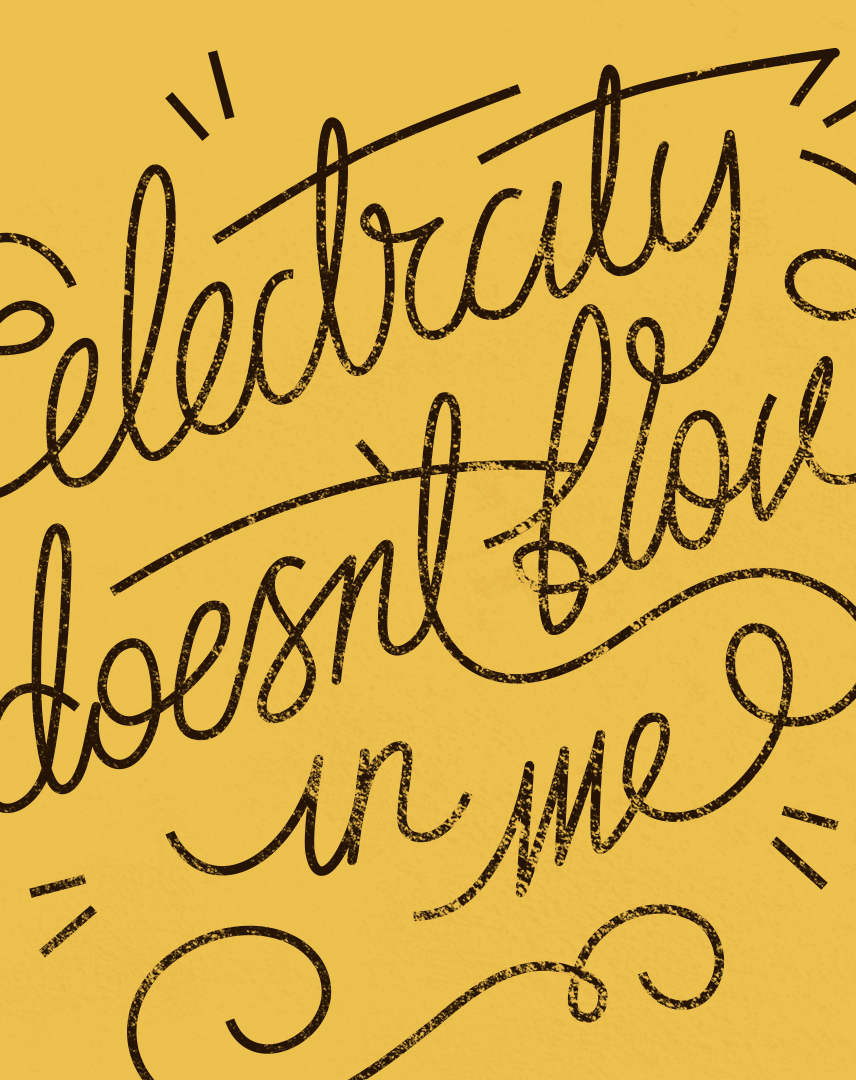 electricity
doesn't flow
in me